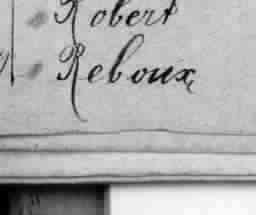 Robert
Reboux